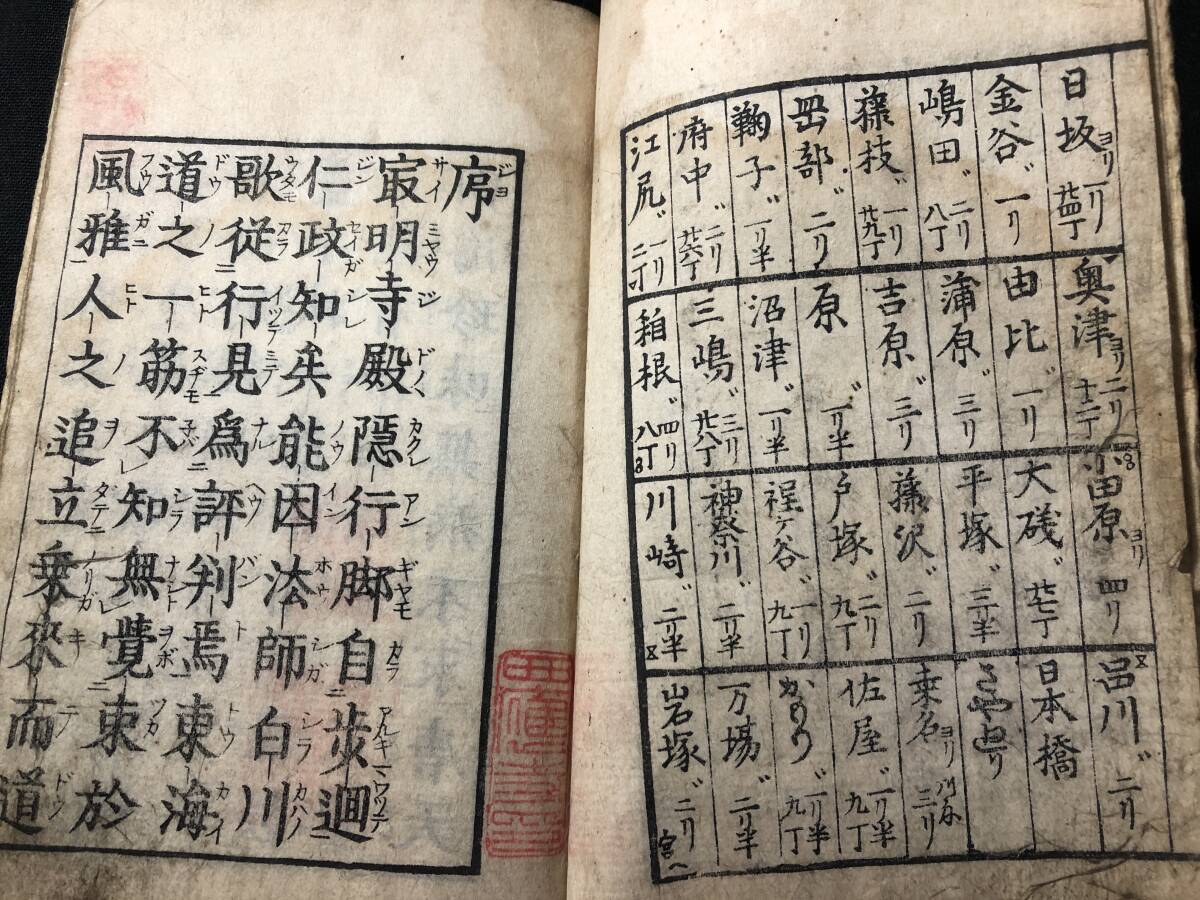 日坂ヨリ一リ廿四丁
金谷〃一リ
嶋田〃二リ八丁
藤枝〃一リ廿九丁
岡部〃二リ
鞠子〃一リ半
府中〃二リ廿六丁
江尻〃一リ二丁
奥津ヨリ二リ十二丁
由比〃一リ
蒲原〃三リ
吉原〃三リ
原〃一リ半
沼津〃一リ半
三嶋〃三リ廿八丁
箱根〃四リ八丁
小田原ヨリ四リ
大磯〃廿七丁
平塚〃三リ半
藤沢〃二リ
戸塚〃二リ九丁
程ヶ谷〃一リ九丁
神奈川〃二リ半
川崎〃二リ半
品川〃二リ
日本橋
さや廻り
桑名ヨリ三リ
佐屋〃一リ半九丁
かもり〃一リ半九丁
万場〃二リ半
岩塚〃二リ宮へ
序
最明寺殿隠行脚自歩廻
仁政知矣能因法師白川
歌従行見為評判焉東海
道之一筋不知無覺束於
風雅人之追立乗來而道